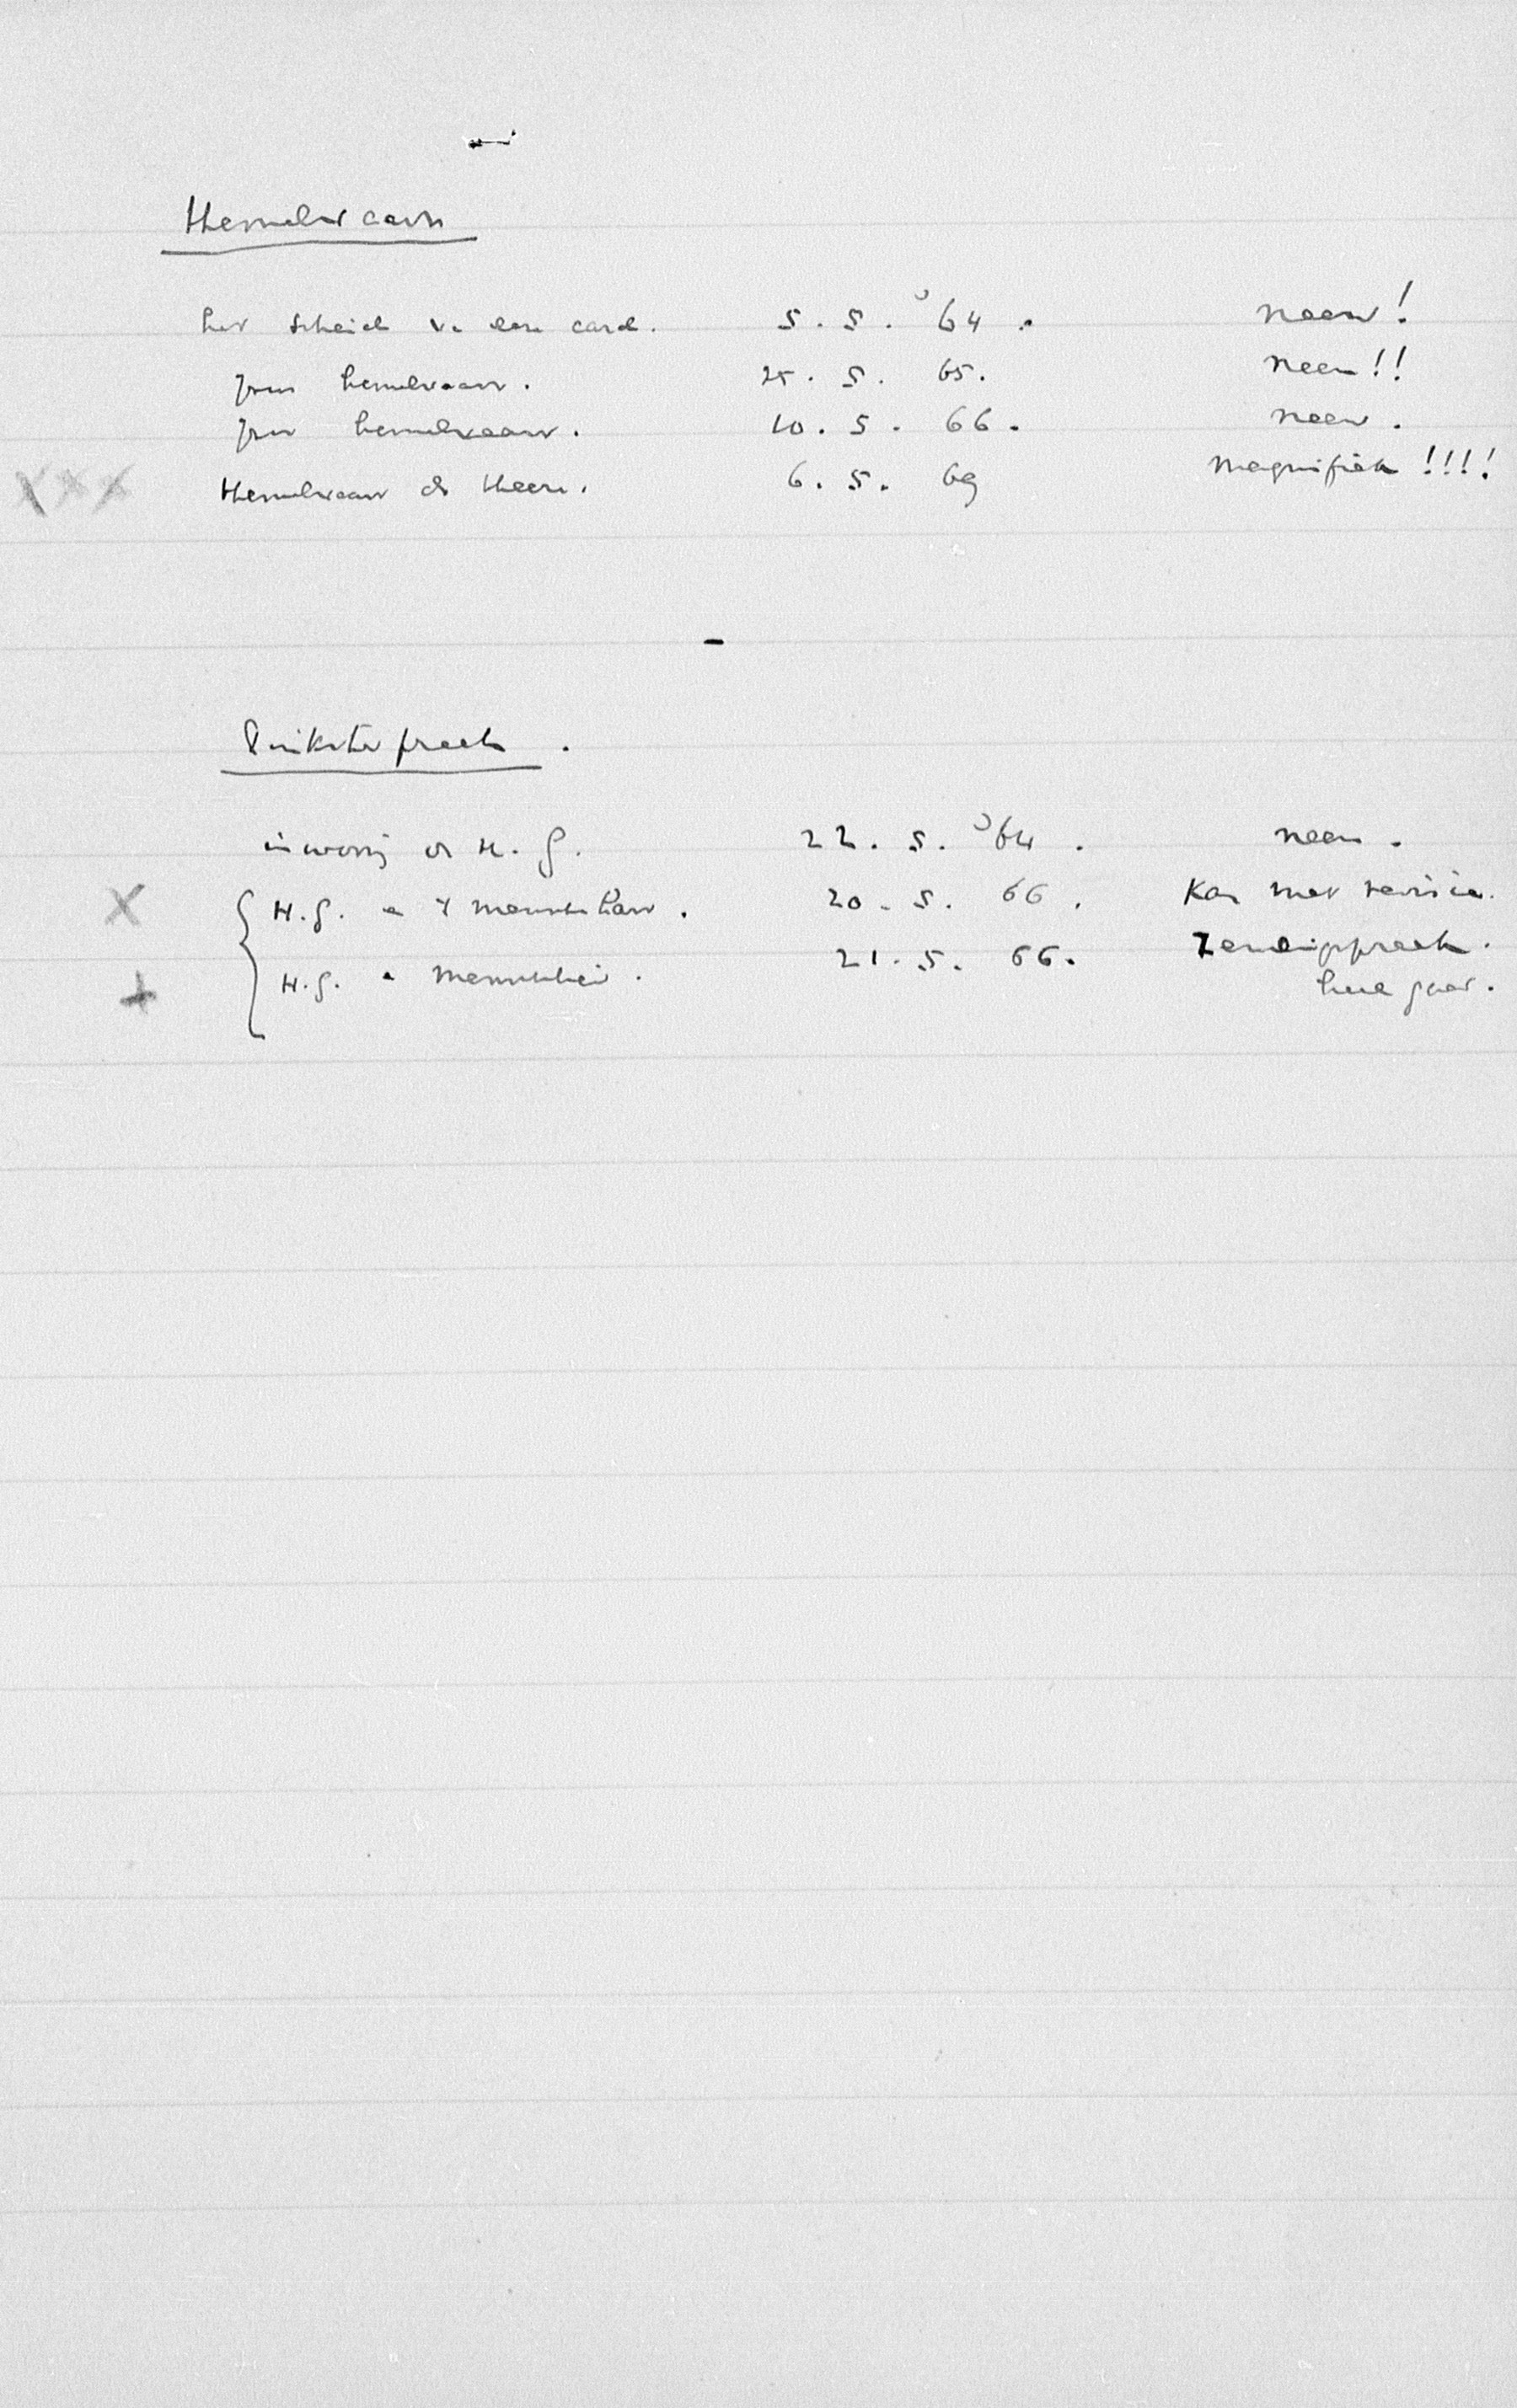 Hemelvaart
het scheid v. deze aard. 5. 5. '64. neen!
Jezus hemelvaart. 25. 5. 65. neen!!
Jezus hemelvaart. 10. 5. 66. neen.
XXX Hemelvaart ds Heere. 6. 5. 69 Magnifiek !!!!
-
Pinksterpreek.
inwonij ds H. G. 22. 5. '64. neen.
X H.G. en 't menschen hart. 20. 5. 66. Kan met revisie.
+ H.G. en menschheid. 21. 5. 66. Zendingspreek.
heel goed.